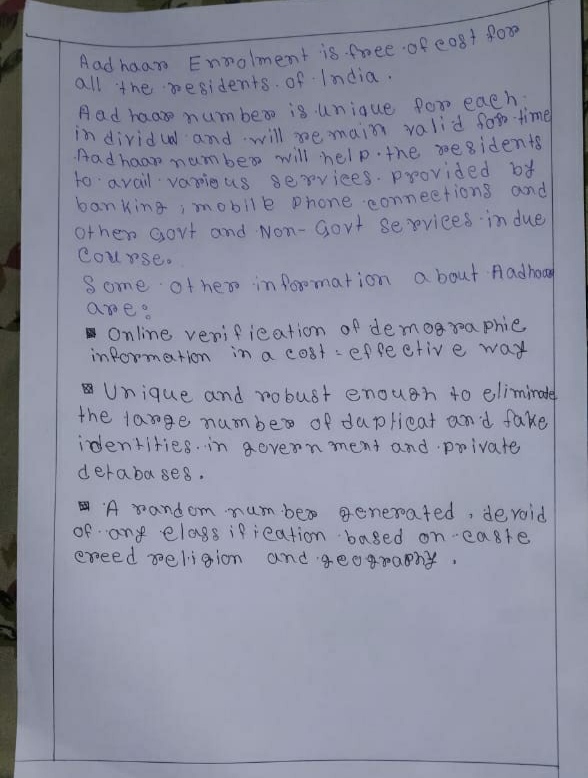 Aadhaar Enrolment is free of cost for
all the residents of India.
Aadhaar number is unique for each
individul and will remain valid for time
Aadhaar number will help the residents
to avail various services provided by
banking, mobile phone connections and
other Govt and Non-Govt Services in due
Course.
Some other information about Aadhaar
are:
Online verification of demographic
information in a cost-effective way
Unique and robust enough to eliminate
the large number of duplicat and fake
identities in government and private
detabases.
A random number generated, devoid
of any classification based on caste
creed religion and geography.